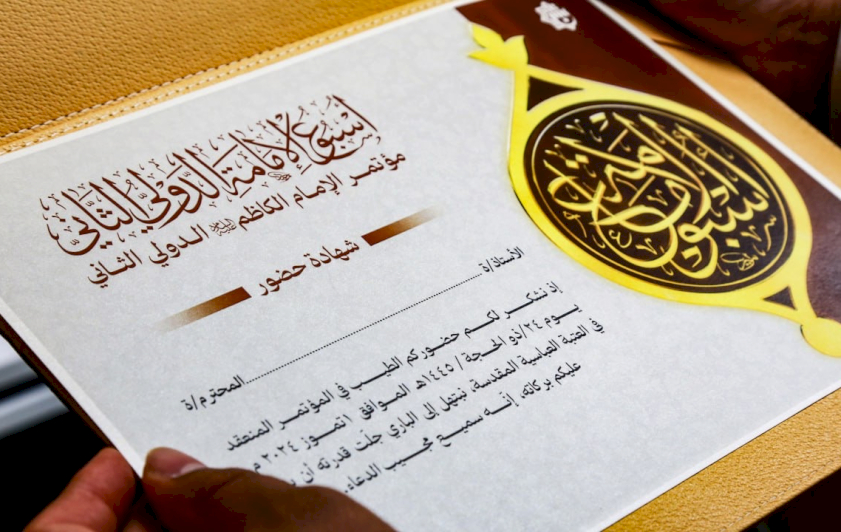 أسبوع الإمامة الدولي الثاني
مؤتمر الإمام الكاظم الدولي الثاني
شهادة حضور
الأستاذ/ة
المحترم/ة
إذ نشكر لكم حضوركم الطيب في المؤتمر المنعقد
يوم ٢٤/ذو الحجة/١٤٤٥هـ الموافق ١تموز ٢٠٢٤ م
في العتبة العباسية المقدسة، نبتهل إلى الباري جلت قدرته أن
عليكم بركاته، إنه سميع مجيب الدعاء.
أسبوع الإمامة